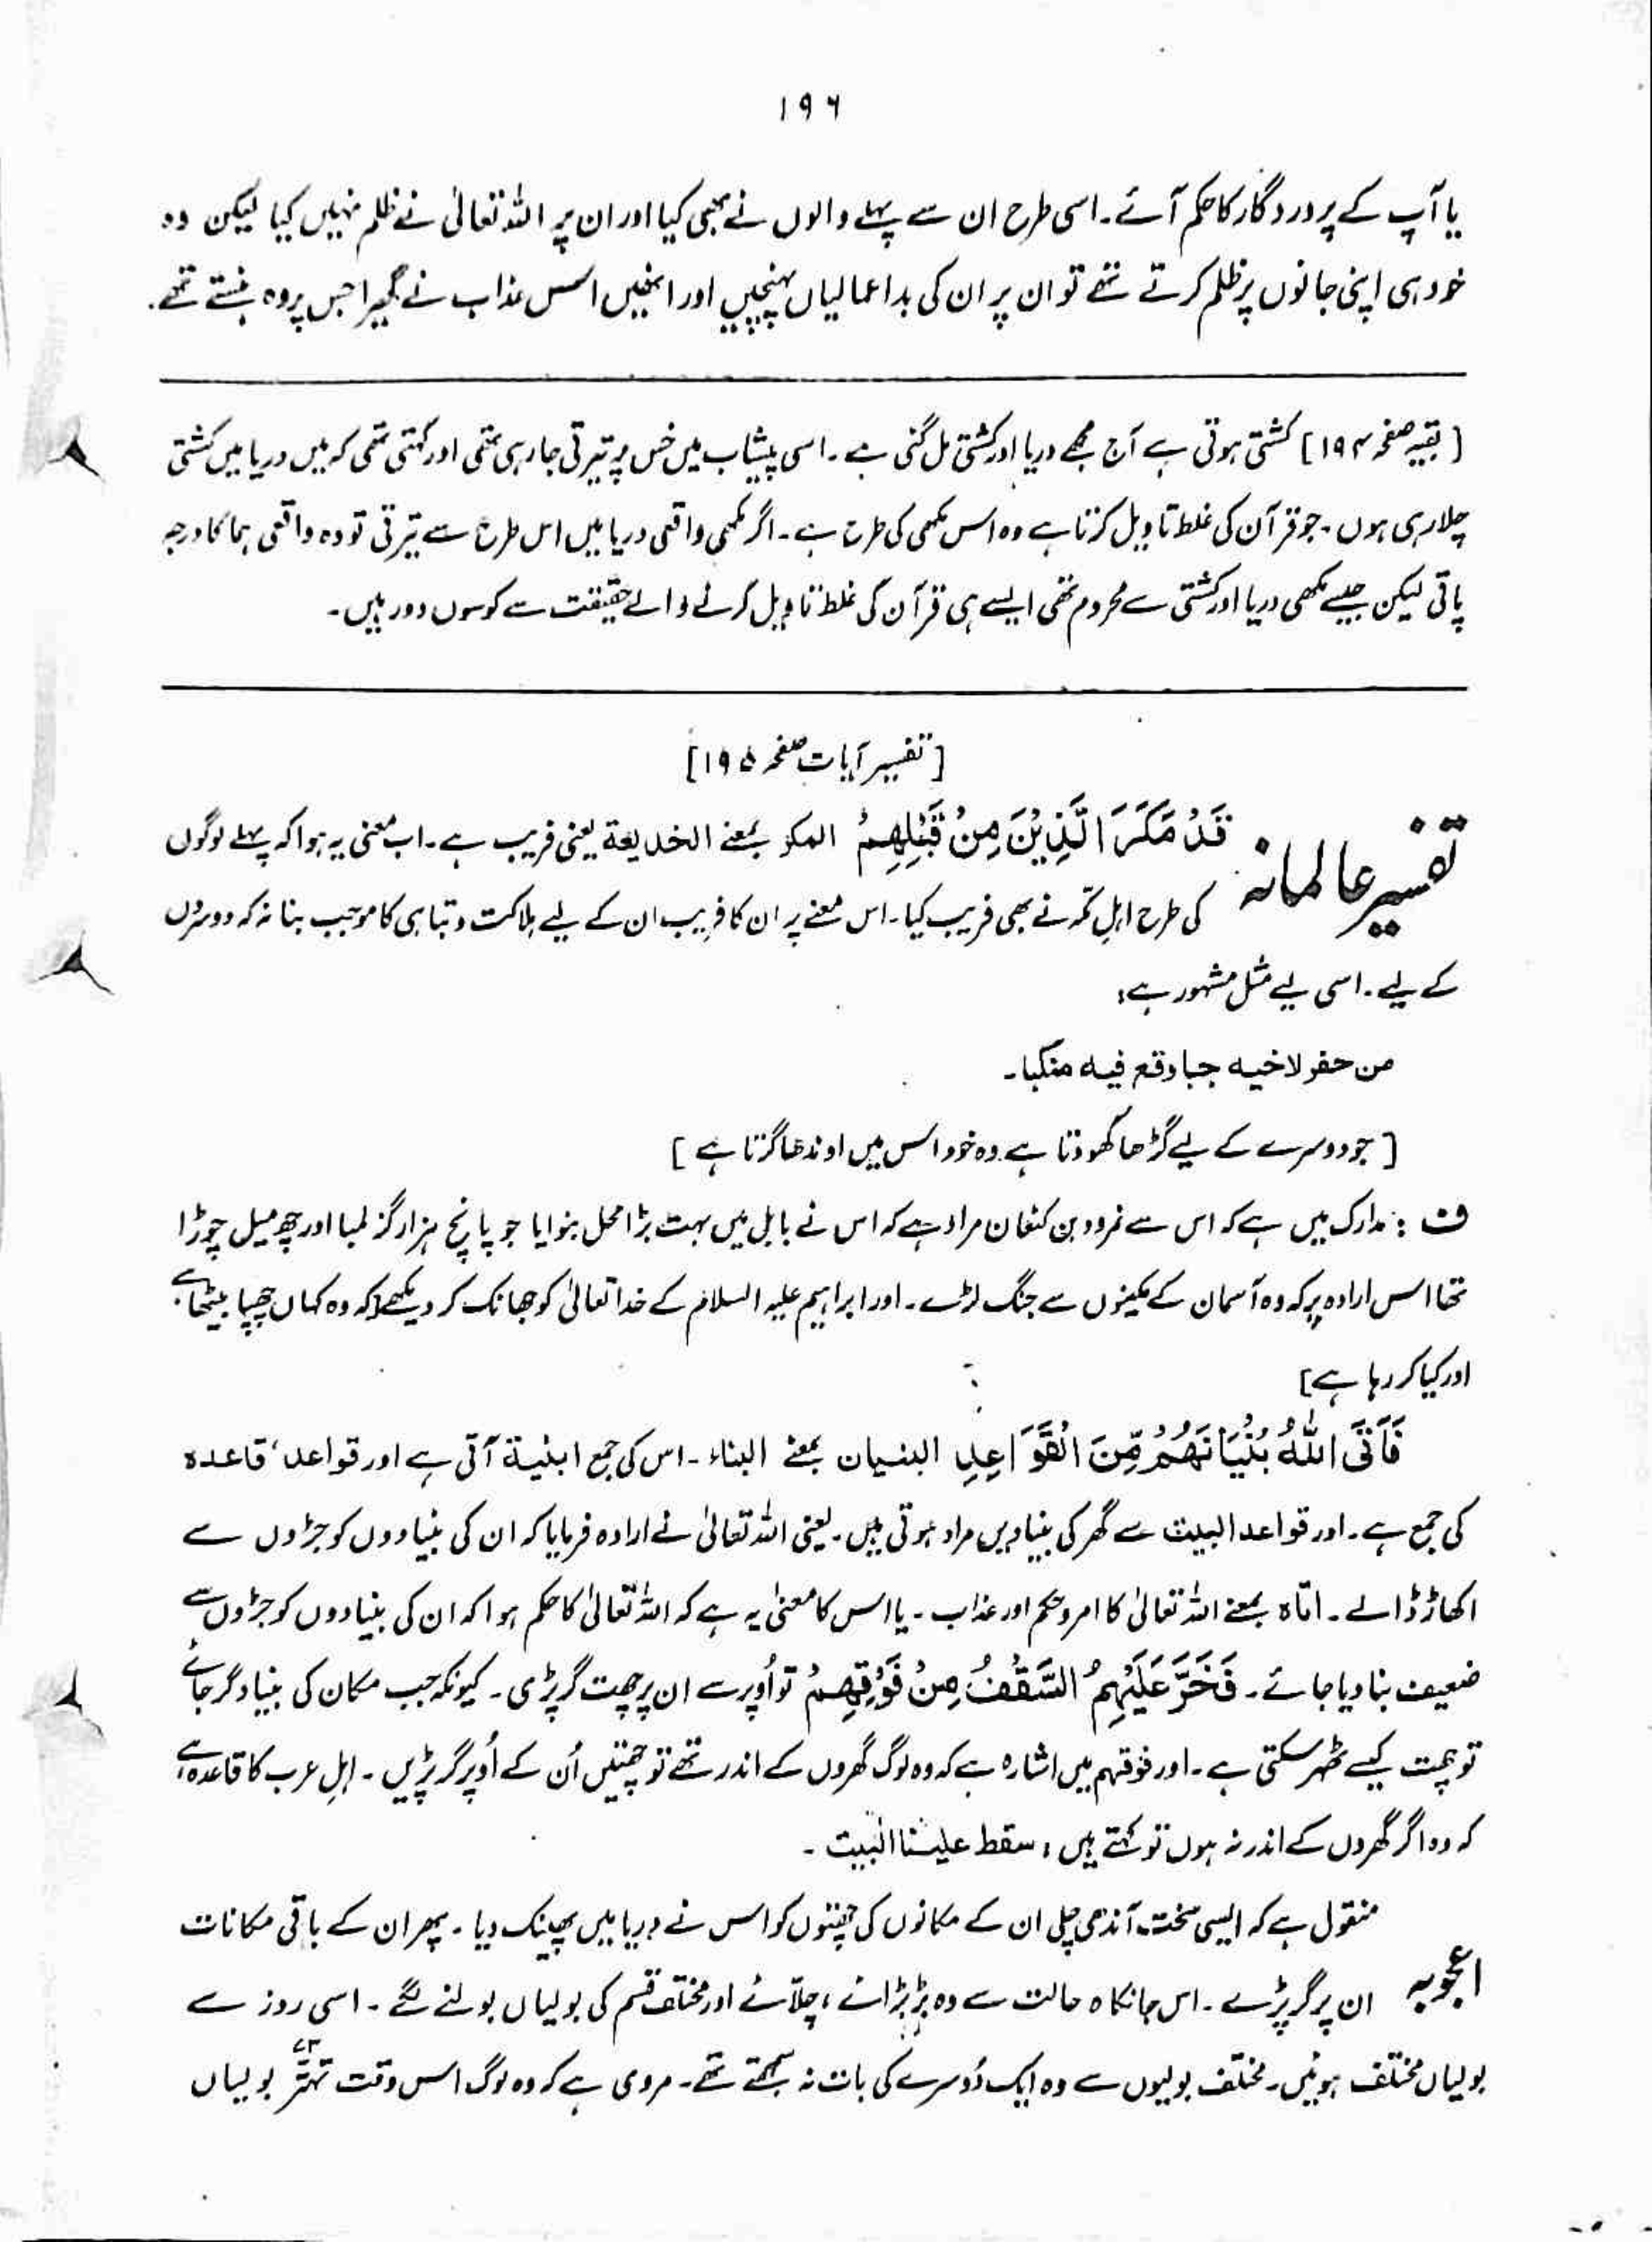 ۱۹۶
یا آپ کے پروردگار کا حکم آئے۔ اسی طرح ان سے پہلے والوں نے بھی کیا اور ان پر اللہ تعالیٰ نے ظلم نہیں کیا لیکن وہ
خود ہی اپنی جانوں پر ظلم کرتے تھے تو ان پر ان کی بداعمالیاں پہنچیں اور انھیں اس عذاب نے گھیرا جس پر وہ ہنستے تھے۔
[ بقیہ صفحہ ۱۹۴] کشتی ہوتی ہے آج مجھے دریا اور کشتی مل گئی ہے۔ اسی پیشاب میں خس پر تیرتی جا رہی تھی اور کہتی تھی کہ میں دریا میں کشتی
چلا رہی ہوں۔ جو قرآن کی غلط تاویل کرتا ہے وہ اس مکھی کی طرح ہے۔ اگر مکھی واقعی دریا میں اس طرح سے تیرتی تو وہ واقعی ہما کا درجہ
پاتی لیکن جیسے مکھی دریا اور کشتی سے محروم تھی ایسے ہی قرآن کی غلط تاویل کرنے والے حقیقت سے کوسوں دور ہیں۔
[ تفسیر آیات صفحہ ۱۹۵]
تفسیر عالمانہ قَدْ مَكَرَ الَّذِيْنَ مِنْ قَبْلِهِمْ المکر بمعنے الخدیعة یعنی فریب ہے۔ اب معنی یہ ہوا کہ پہلے لوگوں
کی طرح اہلِ مکّہ نے بھی فریب کیا۔ اس معنے پر ان کا فریب ان کے لیے ہلاکت و تباہی کا موجب بنا نہ کہ دوسروں
کے لیے۔ اسی لیے مثل مشہور ہے:
من حفر لاخیه جبا وقع فیه منکبا۔
[ جو دوسرے کے لیے گڑھا کھودتا ہے وہ خود اس میں اوندھا گرتا ہے ]
ف : مدارک میں ہے کہ اس سے نمرود بن کنعان مراد ہے کہ اس نے بابل میں بہت بڑا محل بنوایا جو پانچ ہزار گز لمبا اور چھ میل چوڑا
تھا اس ارادہ پر کہ وہ آسمان کے مکینوں سے جنگ لڑے۔ اور ابراہیم علیہ السلام کے خدا تعالیٰ کو جھانک کر دیکھے [کہ وہ کہاں چھپا بیٹھا ہے
اور کیا کر رہا ہے]
فَاَتَى اللّٰهُ بُنْيَانَهُمْ مِّنَ الْقَوَاعِدِ البنیان بمعنے البناء۔ اس کی جمع ابنیة آتی ہے اور قواعد، قاعدہ
کی جمع ہے۔ اور قواعد البیت سے گھر کی بنیادیں مراد ہوتی ہیں۔ یعنی اللہ تعالیٰ نے ارادہ فرمایا کہ ان کی بنیادوں کو جڑوں سے
اکھاڑ ڈالے۔ اتاہ بمعنے اللہ تعالیٰ کا امر و حکم اور عذاب۔ یا اس کا معنیٰ یہ ہے کہ اللہ تعالیٰ کا حکم ہوا کہ ان کی بنیادوں کو جڑوں سے
ضعیف بنا دیا جائے۔ فَخَرَّ عَلَيْهِمُ السَّقْفُ مِنْ فَوْقِهِمْ تو اُوپر سے ان پر چھت گر پڑی۔ کیونکہ جب مکان کی بنیاد گر جائے
تو چھت کیسے ٹھہر سکتی ہے۔ اور فوقہم میں اشارہ ہے کہ وہ لوگ گھروں کے اندر تھے تو چھتیں اُن کے اُوپر گر پڑیں۔ اہلِ عرب کا قاعدہ ہے
کہ وہ اگر گھروں کے اندر نہ ہوں تو کہتے ہیں : سقط علینا البیت ۔
منقول ہے کہ ایسی سخت آندھی چلی ان کے مکانوں کی چھتوں کو اس نے دریا میں پھینک دیا۔ پھر ان کے باقی مکانات
اعجوبہ ان پر گر پڑے۔ اس جانکاہ حالت سے وہ بڑبڑائے، چلّائے اور مختلف قسم کی بولیاں بولنے لگے۔ اسی روز سے
بولیاں مختلف ہوئیں۔ مختلف بولیوں سے وہ ایک دُوسرے کی بات نہ سمجھتے تھے۔ مروی ہے کہ وہ لوگ اس وقت تہتّر ۷۳ بولیاں